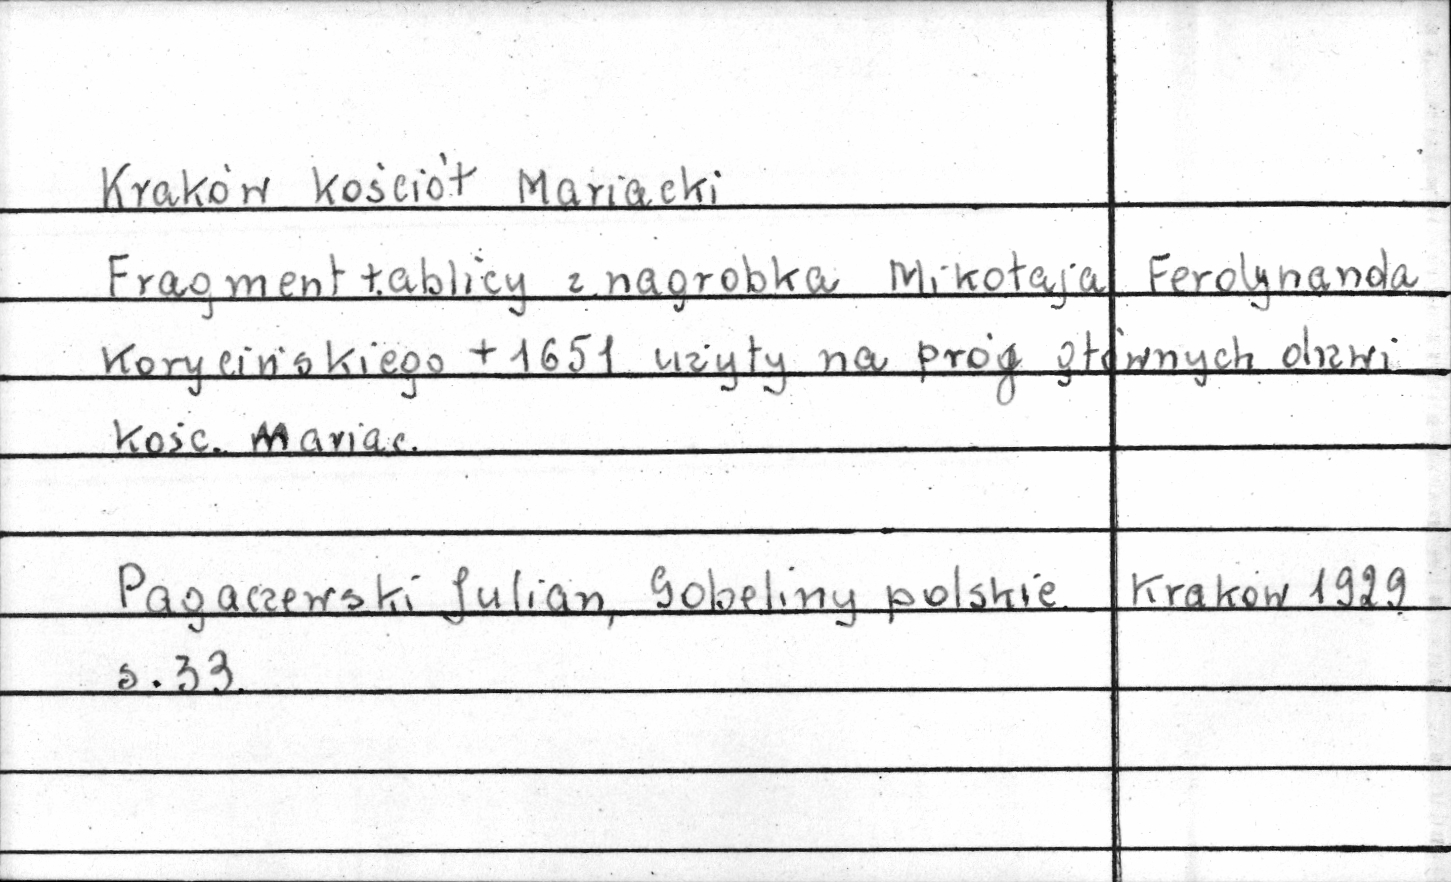 Kraków kościół Mariacki
Fragment tablicy z nagrobka Mikołaja Ferdynanda
Korycińskiego + 1651 użyty na próg głównych drzwi
kość. Mariac.
Pagaczewski Julian, Gobeliny polskie Kraków 1929
s. 33.